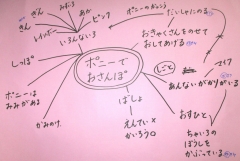 みどり
きん
ぎん
あか
ピンク
レインボー
いろんないろ
ポニーのがっこう
だいしゃにのる
おきゃくさんをのせて
おしてあげる
しっぽ
ポニーで
おさんぽ
しごと
マイク
あんないがかりがいる
ポニーは
みみがある
ばしょ
かみのけ
えんてい×
かいろう○
おすひと
ちゃいろの
ぼうしを
かぶっている